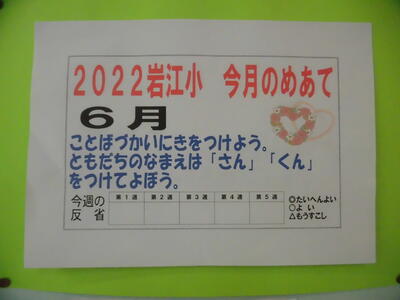 2022岩江小 今月のめあて
6月
ことばづかいにきをつけよう。
ともだちのなまえは「さん」「くん」
をつけてよぼう。
今週の反省 第1週 第2週 第3週 第4週 第5週
◎たいへんよい
○よい
△もうすこし